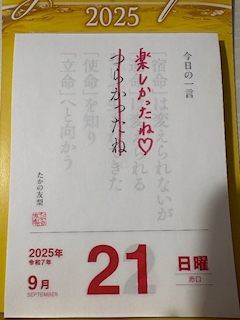 2025
今日の一言
楽しかったね♡
つらかったね
「宿命」は変えられないが
変えられる
きた
「使命」を知り
「立命」へと向かう
たかの友梨
2025年
令和7年
9月
SEPTEMBER
21
日曜
赤口